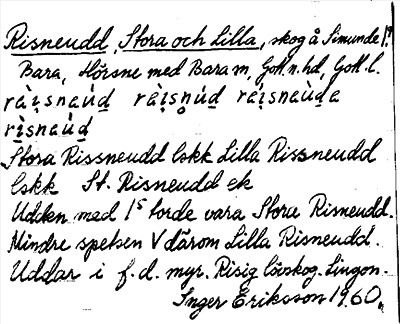 Risneudd, Stora och Lilla, skog å Simunde 1:?
Bara, Hörsne med Bara m, Gotl. n. hd, Gotl. l.
Stora Rissneudd lskk Lilla Rissneudd
lskk St. Risneudd ek
Udden med 1s torde vara Stora Risneudd.
Mindre spetsen V därom Lilla Risneudd.
Uddar i f.d. myr. Risig lövskog. Lingon.
Inger Eriksson 1960.